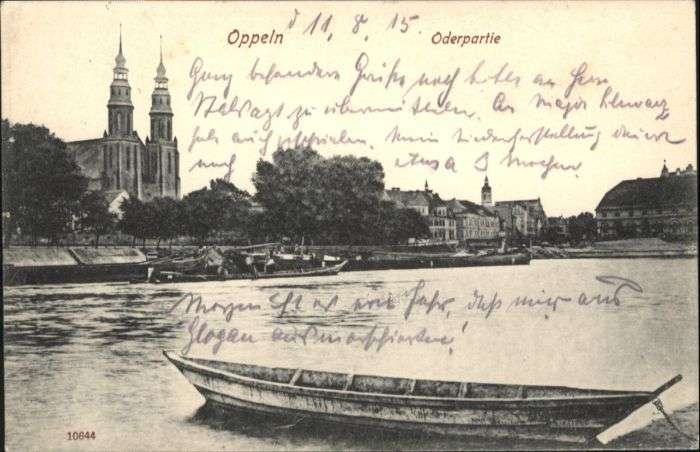 Oppeln d 11. 8. 15. Oderpartie
Ganz besondere Grüße noch bitte an Herrn
Stabsarzt zu übermitteln. An Major Schwarz
habe auch geschrieben. Meine Wiederherstellung dauert
noch etwa 8 Wochen.
Morgen ist es ein Jahr, daß wir aus
Glogau ausmarschierten!
10644